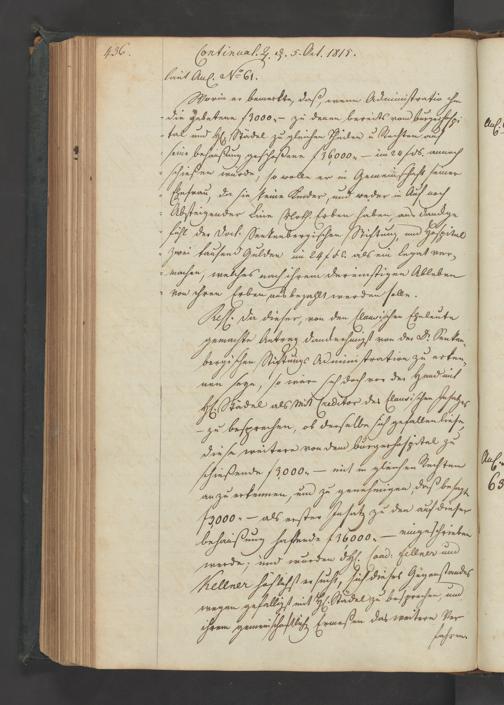 436.
Continuat. d. 5. Oct. 1815.
laut Anl. No 61.
Worin er bemerkte, daß wenn Administratio ihm
die gebetene f 3000.– zu denen bereits vom Bürgerhospi-
tal und H. Städel zu gleichen Theilen u. Rechten auf
seine Behausung geschossene f 36000.– im 24 f ds. annoch
schießen würde, so wolle er in Gemeinschaft seiner
Ehefrau, da sie keine Kinder, und weder in Auf noch
Absteigender Linie Noth Erben haben, aus Dankge-
fühl der Doct. Senkenbergischen Stiftung und Hospital
zwei tausend Gulden im 24 f ds. als ein Legat ver-
machen, welches nach ihrem dereinstigen Ableben
von ihren Erben ausbezahlt werden solle.
Resp. Da dieser, von den Eheleute
gemachte Antrag dankbarlichst von der Dr. Senken-
bergischen Stiftungs Administration zu erken-
nen seye, so wäre sich doch vor der Hand mit
H. Städel als Mit Creditor des Insatzes
zu besprechen, ob derselbe sich gefallen ließe,
diese weitere von dem Bürgerhospital zu
schießende f 3,000.– mit in gleichen Rechten
anzuerkennen, und zu genehmigen, daß besagte
f 3,000.– als erster Insatz zu den auf dieser
Behausung haftende f 36000.– eingeschrieben
werde; und wurden dHl. und
Kellner höchlichst ersucht, sich dieses Gegenstandes
wegen gefälligst mit H. Städel zu besprechen, und
ihrem gemeinschaftlich Ermessen das weitere Ver-
fahren